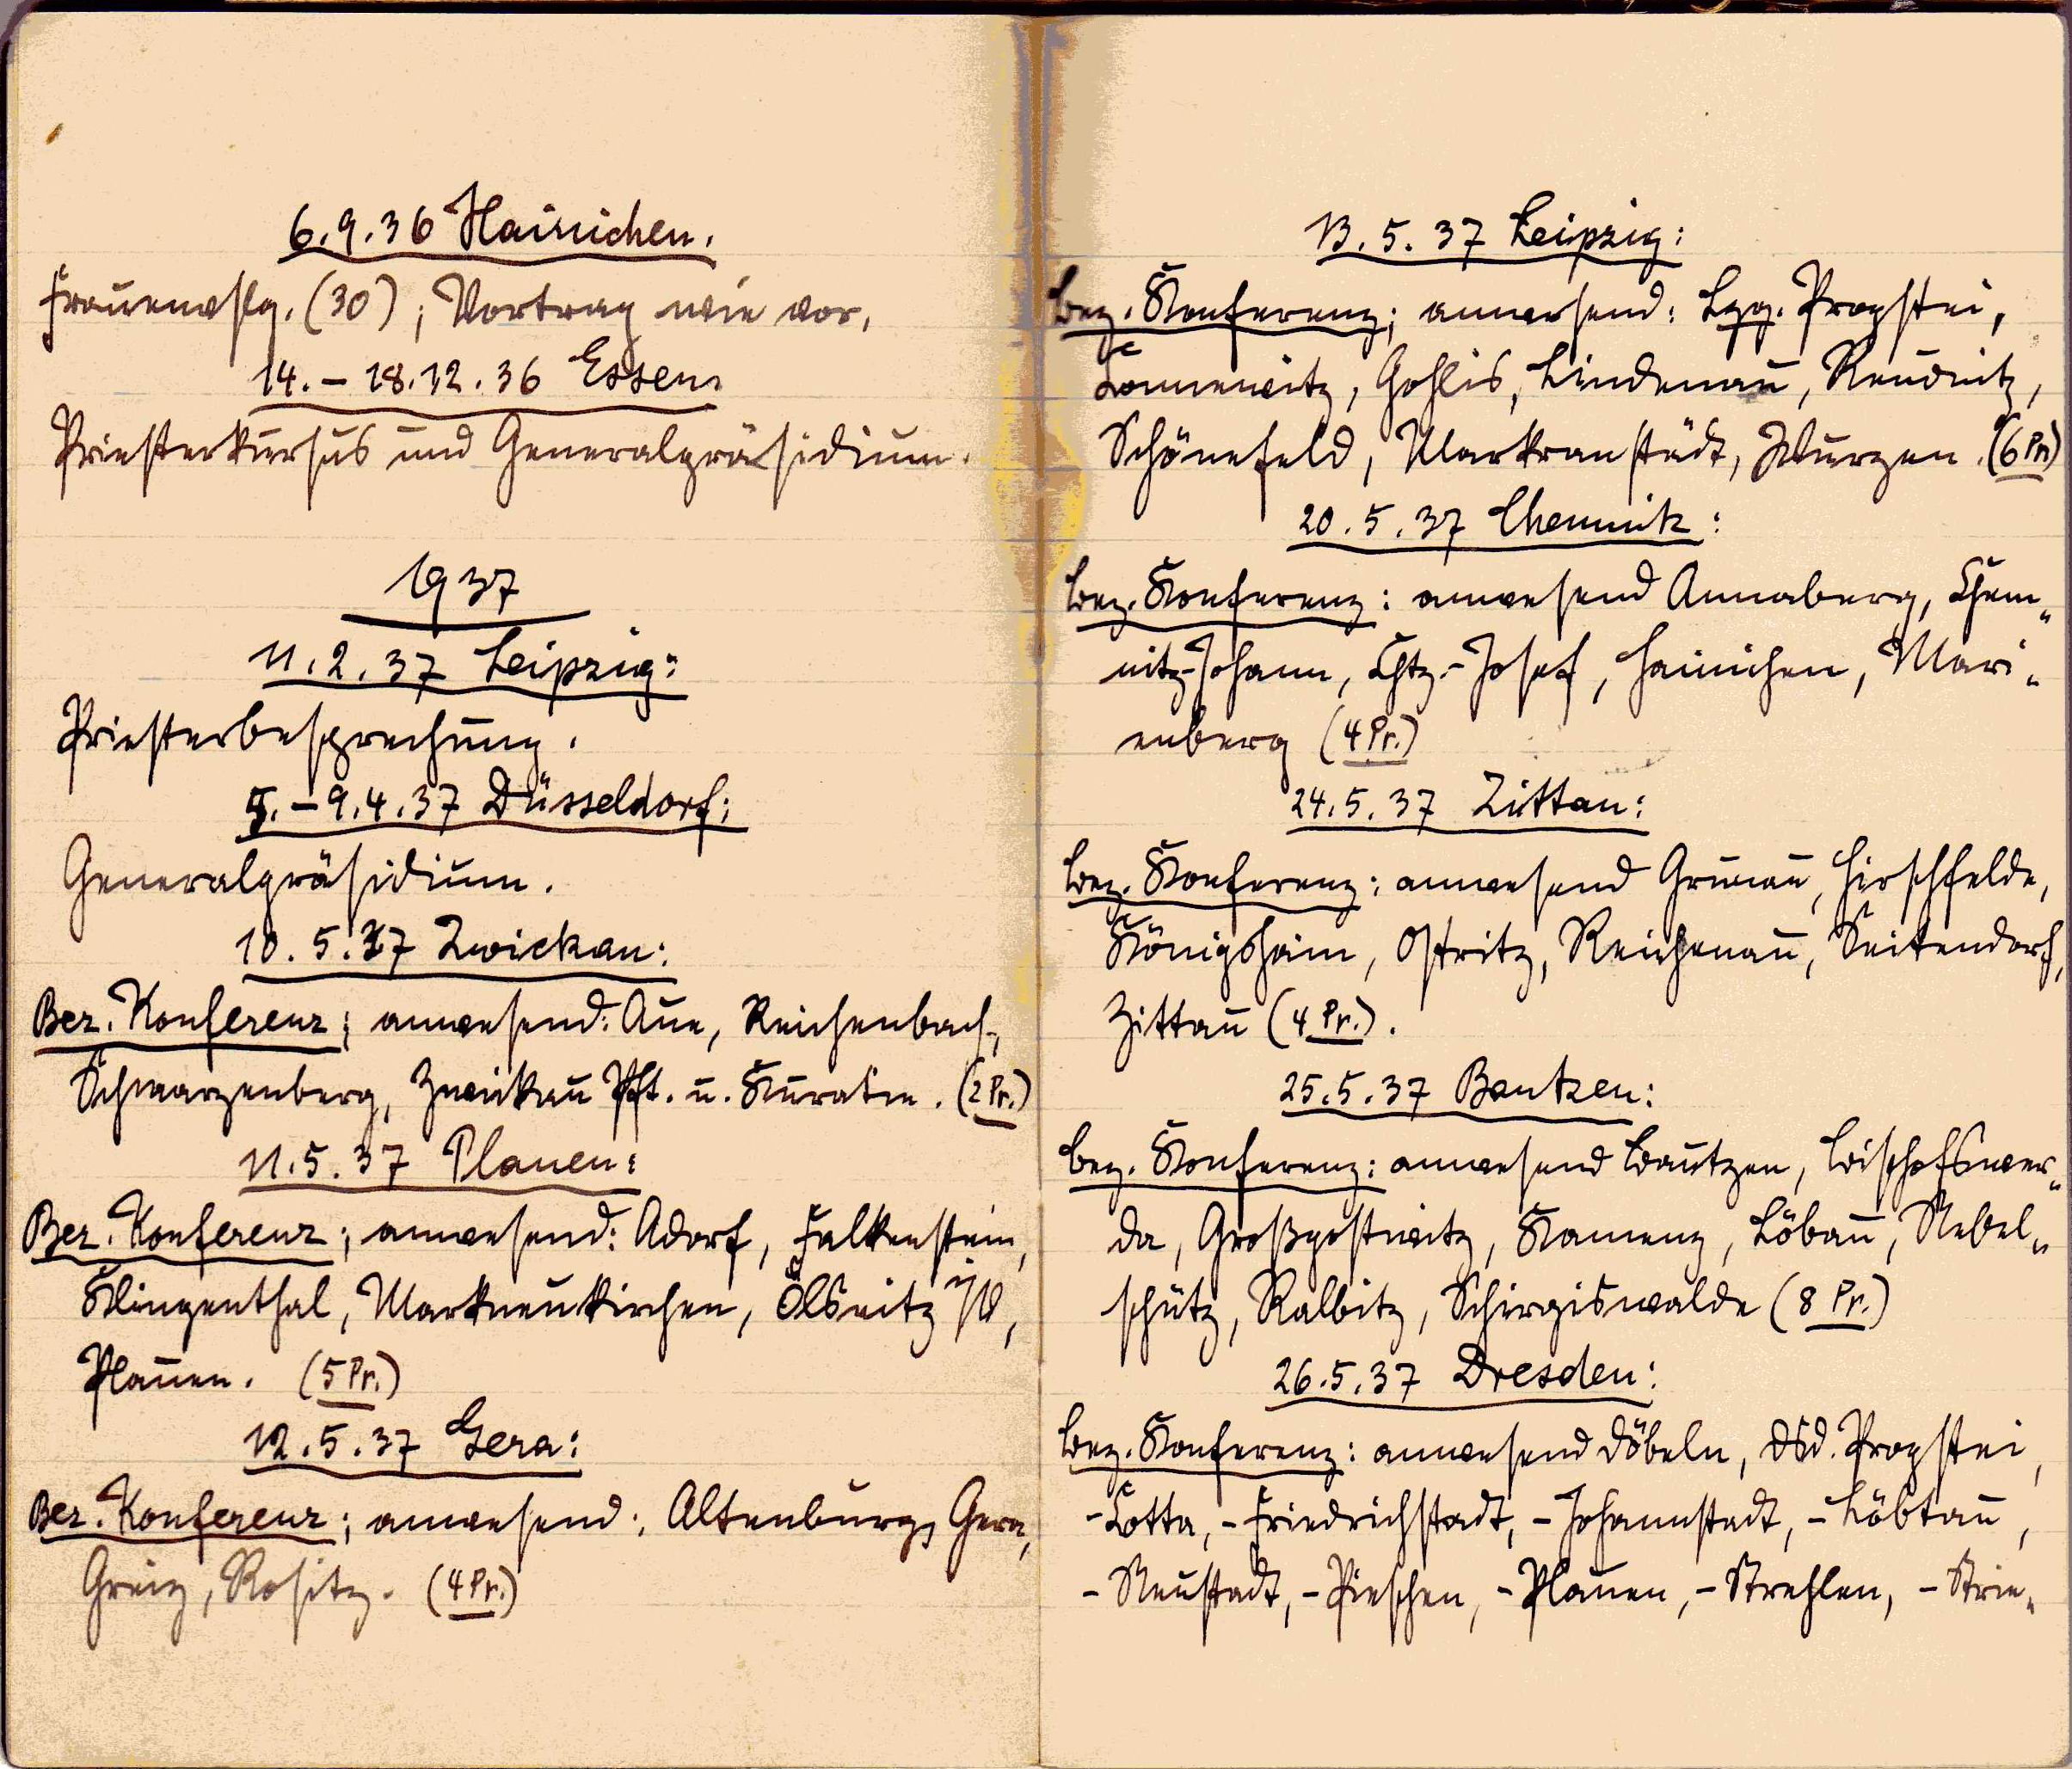 6.9.36 Hainichen.
Frauenvslg. (30); Vortrag wie vor.
14.–18.12.36 Essen.
Priesterkursus und Generalpräsidium.
1937
11.2.37 Leipzig:
Priesterbesprechung.
5.–9.4.37 Düsseldorf:
Generalpräsidium.
10.5.37 Zwickau:
Bez. Konferenz; anwesend: Aue, Reichenbach,
Schwarzenberg, Zwickau Pft. u. Kuratie. (2 Pr.)
11.5.37 Plauen:
Bez. Konferenz; anwesend: Adorf, Falkenstein,
Klingenthal, Markneukirchen, Ölsnitz i/V,
Plauen. (5 Pr.)
12.5.37 Gera:
Bez. Konferenz; anwesend: Altenburg, Gera,
Greiz, Rositz. (4 Pr.)
13.5.37 Leipzig:
Bez. Konferenz; anwesend: Lpzg. Propstei,
Connewitz, Gohlis, Lindenau, Reudnitz,
Schönefeld, Markranstädt, Wurzen. (6 Pr)
20.5.37 Chemnitz:
Bez. Konferenz: anwesend Annaberg, Chem-
nitz-Johann, Chtz.-Josef, Hainichen, Mari-
enberg (4 Pr.)
24.5.37 Zittau:
Bez. Konferenz: anwesend Grunau, Hirschfelde,
Königshain, Ostritz, Reichenau, Seitendorf,
Zittau (4 Pr.).
25.5.37 Bautzen:
Bez. Konferenz: anwesend Bautzen, Bischofswer-
da, Großpostwitz, Kamenz, Löbau, Nebel-
schütz, Ralbitz, Schirgiswalde (8 Pr.)
26.5.37 Dresden:
Bez. Konferenz: anwesend Döbeln, Dsd. Propstei,
-Cotta, -Friedrichstadt, -Johannstadt, -Löbtau,
-Neustadt, -Pieschen, -Plauen, -Strehlen, -Strie-